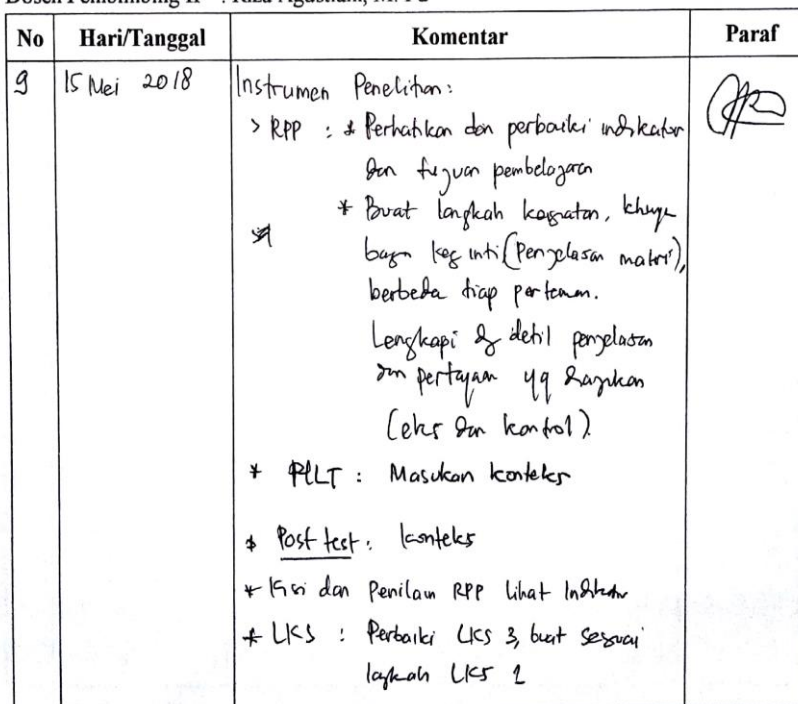 Dosen Pembimbing II : Riza Agustiani, M. Pd
No Hari/Tanggal Komentar Paraf
9 15 Mei 2018 Instrumen Penelitian:
> RPP : * Perhatikan dan perbaiki indikator
dan tujuan pembelajaran
* Buat langkah kegiatan, khusus
bagn keg inti (Penjelasan materi),
berbeda tiap pertemuan.
Lengkapi dg detil penjelasan
dan pertayaan yg diajukan
(eks dan kontrol).
* : Masukan konteks
* Post test : konteks
* Kisi dan Penilaian RPP Lihat Indikator
* LKS : Perbaiki LKS 3, buat sesuai
langkah LKS 1